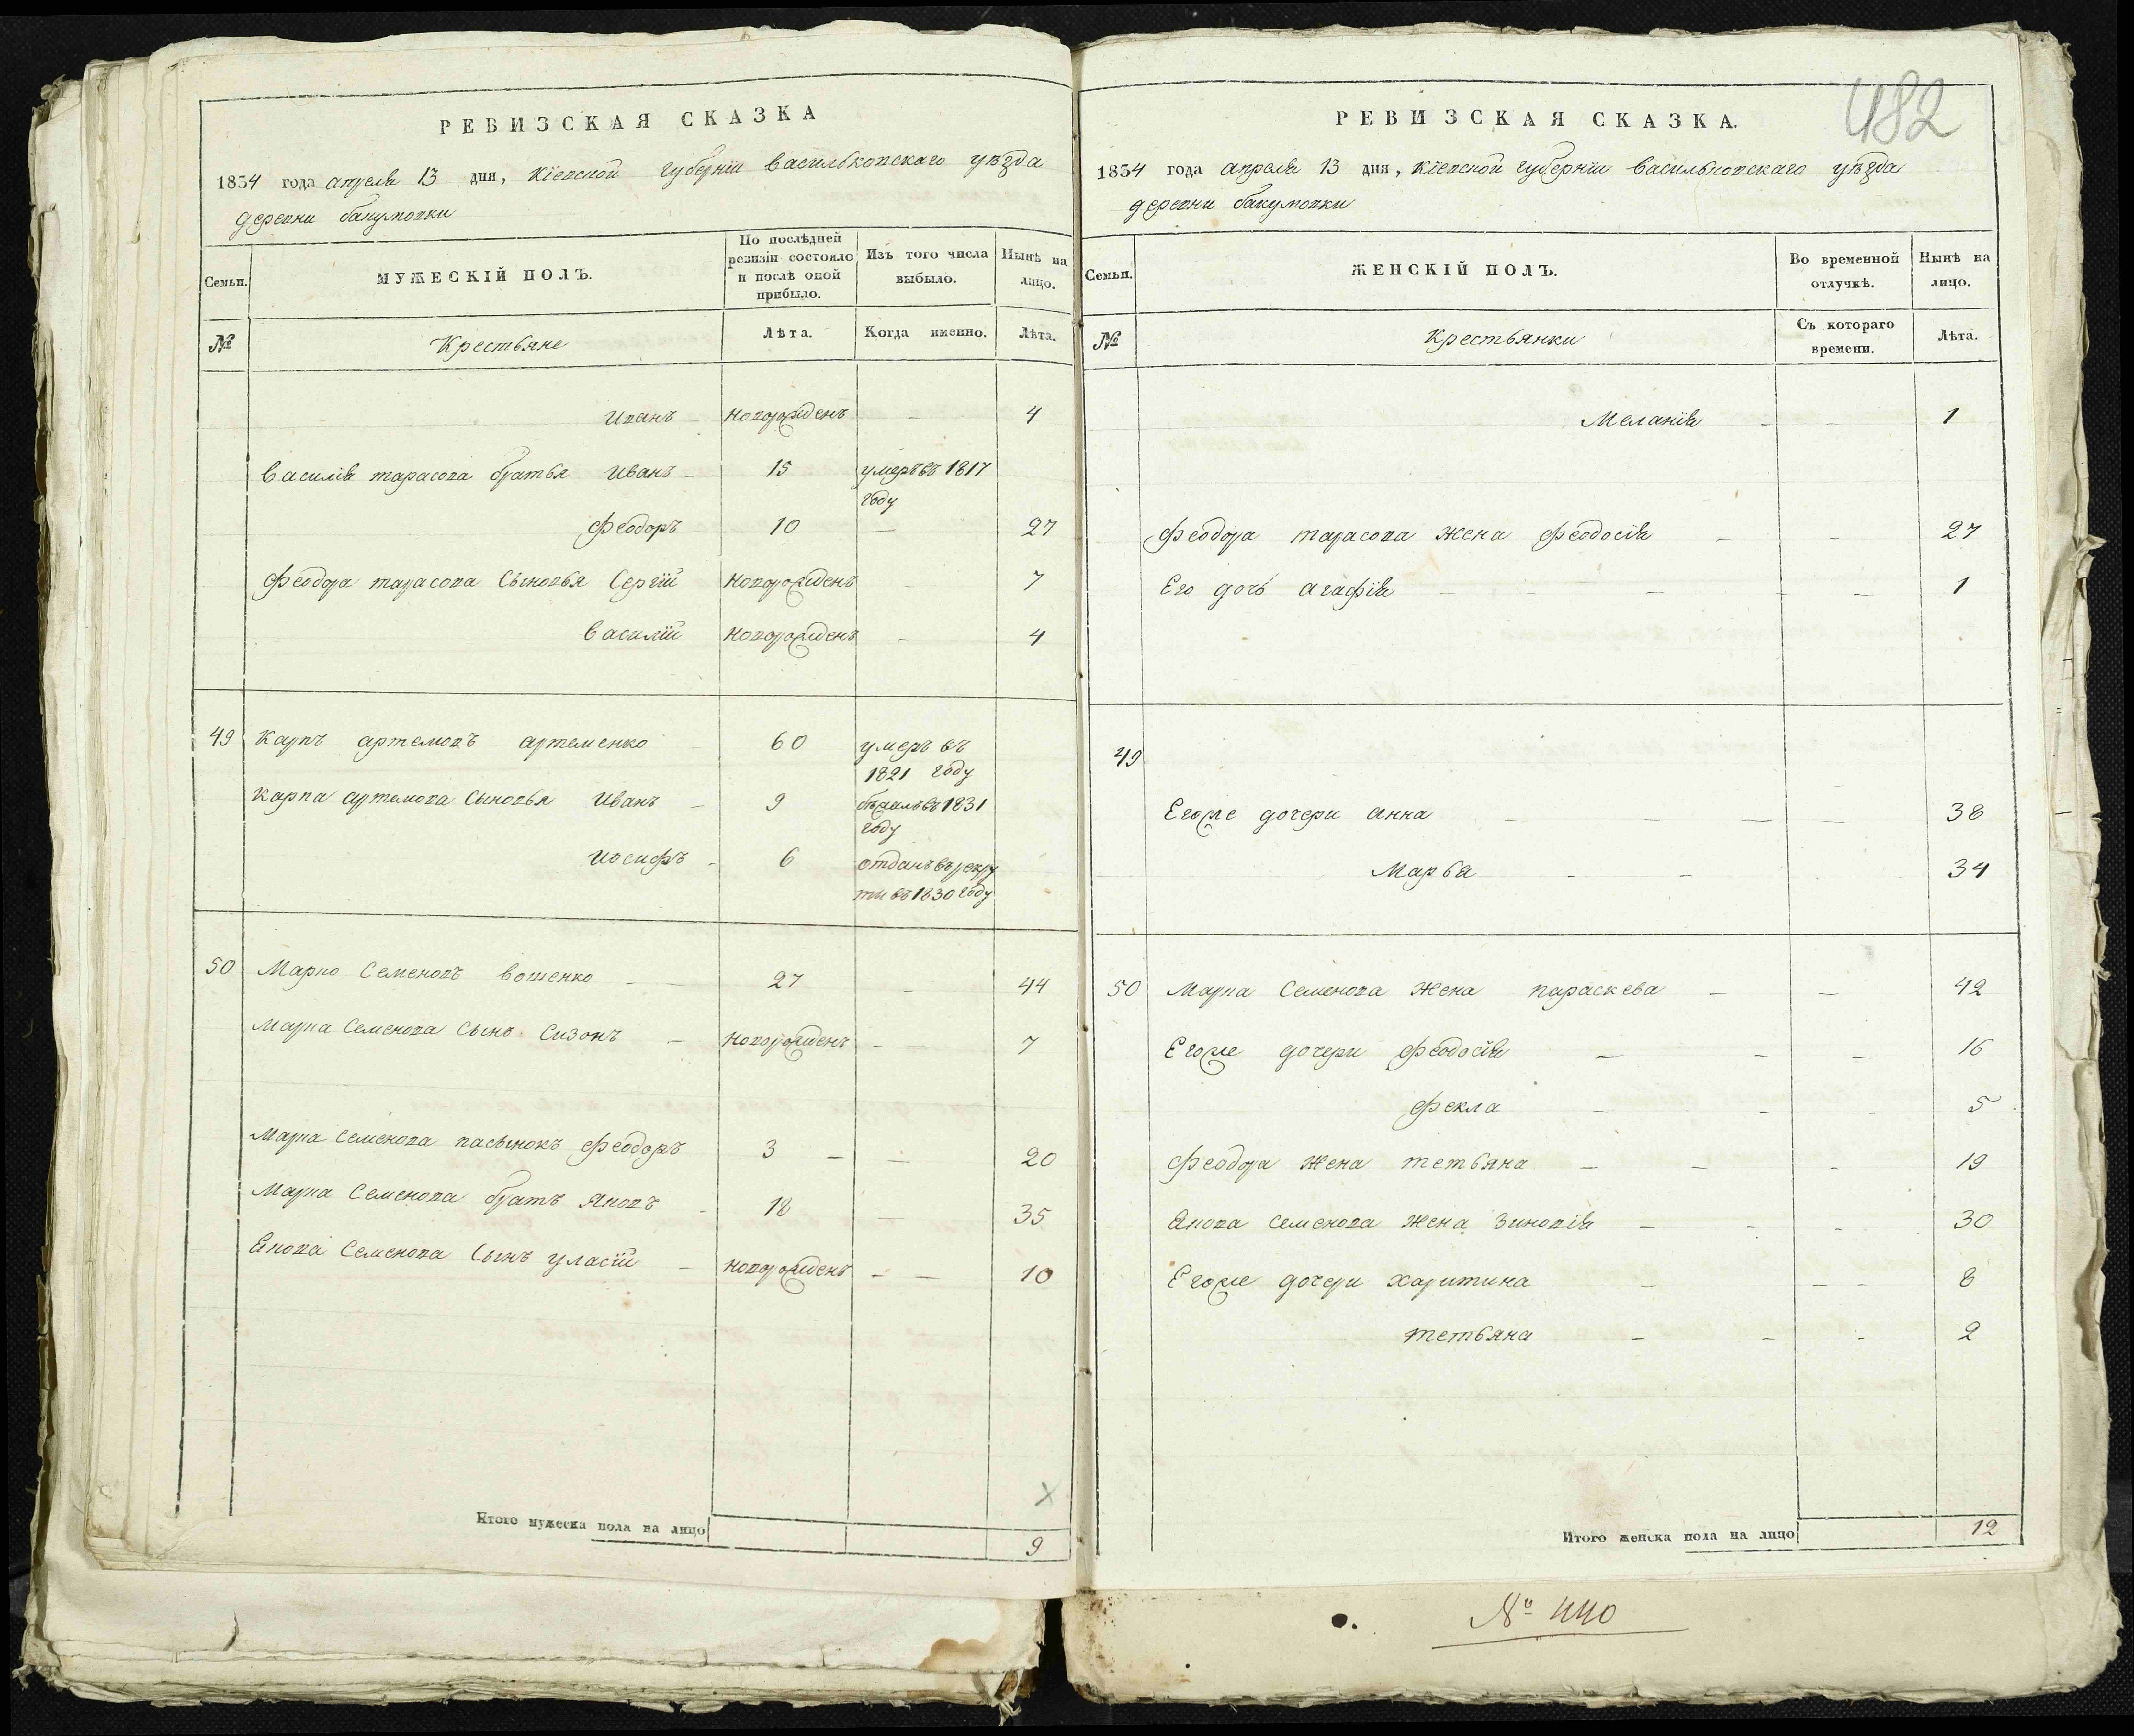 РЕВИЗСКАЯ СКАЗКА
1834 года апреля 13 дня, Кіевской губерніи Васильковскаго уѣзда
деревни бакумовки
Семьи.
МУЖЕСКІЙ ПОЛЪ.
По послѣдней ревизіи состояло и послѣ оной прибыло.
Изъ того числа выбыло.
Нынѣ на лицо.
№
Крестьяне
Лѣта.
Когда именно.
Лѣта.
Иванъ - новорожденъ - 4
Василія тарасова братья Иванъ - 15 умеръ въ 1817
году
Феодоръ - 10 - 27
Феодора тарасова Сыновья Сергій новорожденъ - 7
Василій новорожденъ - 4
49 Карпъ артемовъ артеменко - 60 умеръ въ
1821 году
Карпа артемова Сыновья Иванъ - 9 бѣжалъ въ 1831
году
Иосифъ - 6 отданъ въ рекру
ты въ 1830 году
50 Марко Семеновъ вошенко - - 27 - 44
Марка Семенова Сынъ Сизонъ - новорожденъ - - 7
Марка Семенова пасынокъ Феодоръ 3 - - 20
Марка Семенова братъ Яковъ - 18 - 35
Якова Семенова Сынъ уласій - новорожденъ - - 10
Итого мужеска пола на лицо
9
482
РЕВИЗСКАЯ СКАЗКА.
1834 года апреля 13 дня, Кіевской губерніи Васильковскаго уѣзда
деревни бакумовки
Семьи.
ЖЕНСКІЙ ПОЛЪ.
Во временной отлучкѣ.
Нынѣ на лицо.
№
Крестьянки
Съ котораго времени.
Лѣта.
Меланія - - 1
Феодора тарасова жена Феодосія - - 27
Его дочь агафія - - - - - 1
49
Егоже дочери анна - - - - 38
Марья - - 34
50 Марка Семенова жена параскева - - 42
Егоже дочери Феодосія - - - 16
Фекла - - - 5
Феодора жена тетьяна - - - 19
Якова Семенова жена Зиновія - - - 30
Егоже дочери харитина - - - 8
тетьяна - - - 2
Итого женска пола на лицо
12
№ 440